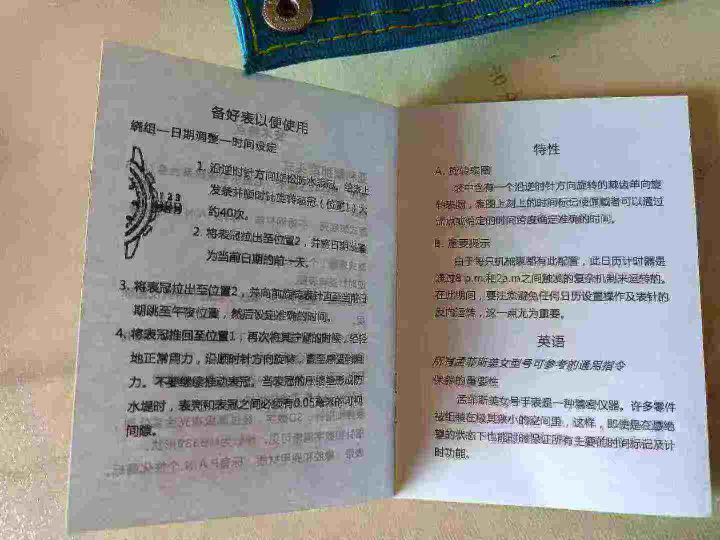 备好表以便使用
绕组—日期调整—时间设定
1. 沿逆时针方向旋松防水表冠。给表上
发条并顺时针旋转表冠（位置1）大
约40次。
2. 将表冠拉出至位置2，并将日期调整
为当前日期的前一天。
3. 将表冠拉出至位置2，并向前旋转表针直至当前日
期跳至午夜位置，然后设定准确的时间。
4. 将表冠推回至位置1，再次将其拧紧的时候，轻轻
地正常用力，沿顺时针方向旋转，直至感觉到阻
力。不要继续推动表冠。当表冠的压缩垫形成防
水堤时，表壳和表冠之间必须有0.05毫米的可视
间隙。
1 2 3
特性
A. 旋转表圈
表中含有一个沿逆时针方向旋转的棘齿单向旋
转表圈，表圈上刻上的时间标记使佩戴者可以通过
给定的时间跨度确定准确的时间。
B. 重要提示
由于每只机械表都有此配置，此日历计时器是
通过8 p.m.和2a.m之间触发的复杂机制来运转的。
在此期间，要注意避免任何日历设置操作及表针的
反向运转，这一点尤为重要。
英语
所有孟菲斯美女型号可参考的通用指令
保养的重要性
孟菲斯美女号手表是一种精密仪器。许多零件
被组装在极其狭小的空间里，这样，即使是在
的状态下也能时时保证所有主要的时间标记及计
时功能。